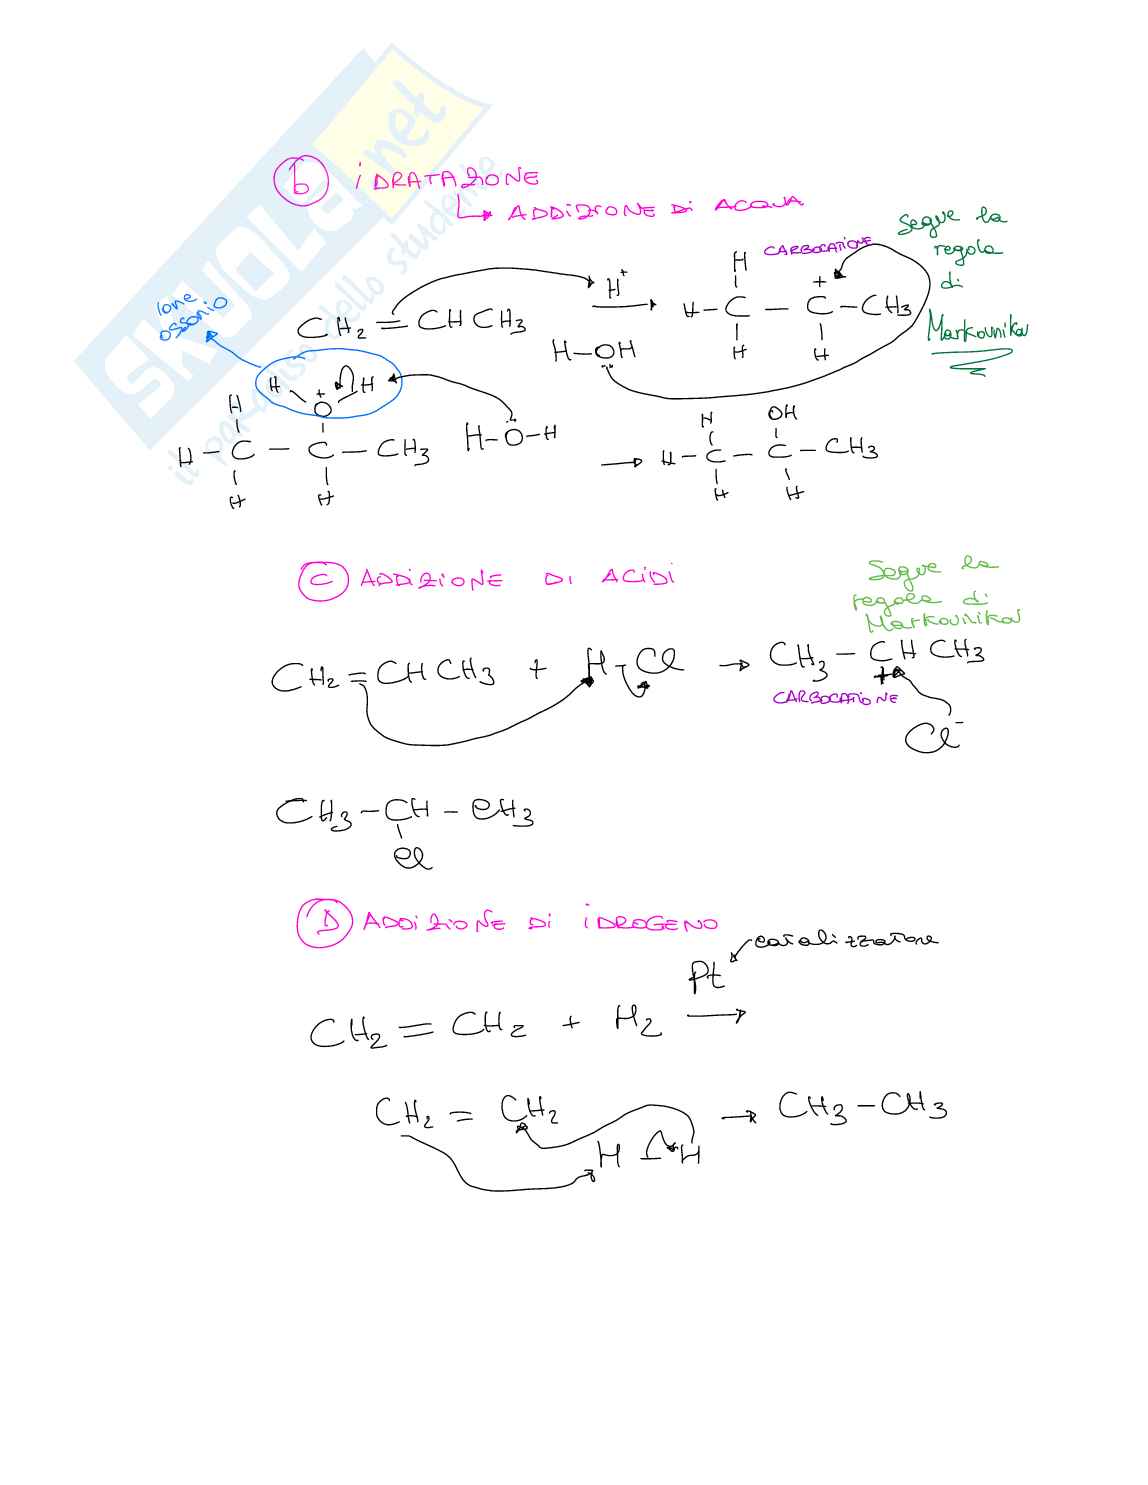 SKUOLA.net
il paradiso dello studente
b IDRATAZIONE
ADDIZIONE DI ACQUA
Segue la
regola
di
Markovnikov
CARBOCATIONE
Ione
ossonio
CH2=CHCH3
H+
H
H-C-C-CH3
+
H H
H-OH
H H
O+
H
H-C-C-CH3
H H
H-O-H
H OH
H-C-C-CH3
H H
C ADDIZIONE DI ACIDI
Segue la
regola di
Markovnikov
CH2=CHCH3 + H-Cl → CH3-CHCH3
+
CARBOCATIONE
Cl-
CH3-CH-CH3
Cl
D ADDIZIONE DI IDROGENO
catalizzatore
Pt
CH2=CH2 + H2 →
CH2=CH2 → CH3-CH3
H-H